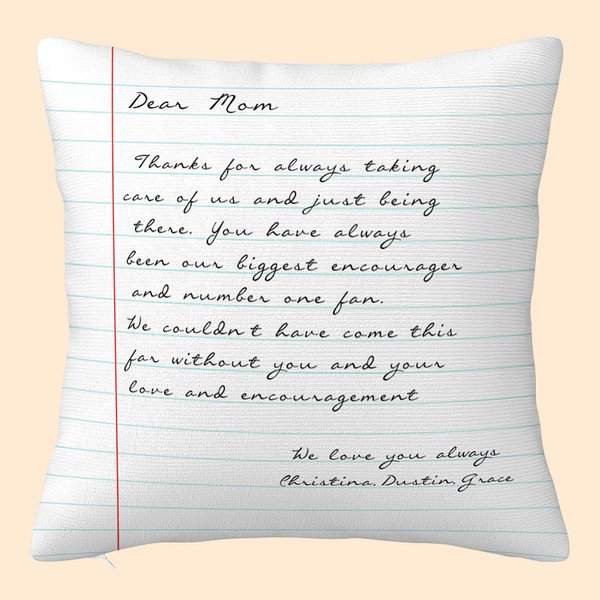 Dear Mom
Thanks for always taking
care of us and just being
there. You have always
been our biggest encourager
and number one fan.
We couldn't have come this
far without you and your
love and encouragement
We love you always
Christina, Dustin, Grace